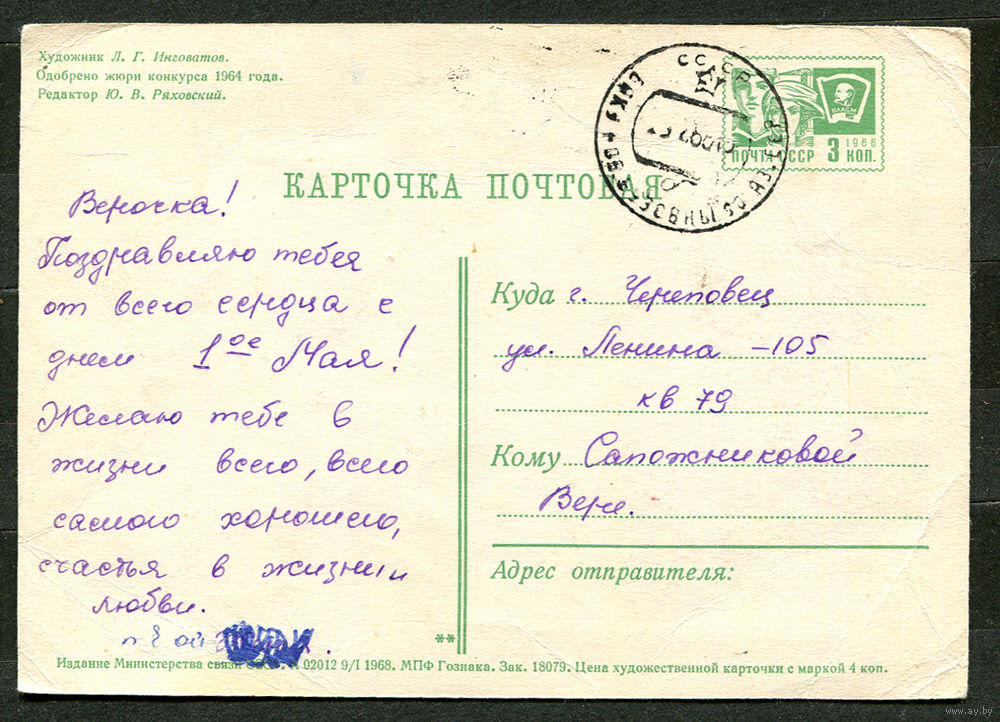 Художник Л. Г. Инговатов.
Одобрено жюри конкурса 1964 года.
Редактор Ю. В. Ряховский.
СССР
1966
ВЛКСМ
ПОЧТА СССР 3 КОП.
КАРТОЧКА ПОЧТОВАЯ
Верочка!
Поздравляю тебя
от всего сердца с
днем 1ое Мая!
Желаю тебе в
жизни всего, всего
самого хорошего,
счастья в жизни и
любви.
Куда г. Череповец
ул. Ленина – 105
кв 79
Кому Сапожниковой
Вере.
Адрес отправителя:
**
Издание Министерства связи 02012 9/I 1968. МПФ Гознака. Зак. 18079. Цена художественной карточки с маркой 4 коп.
www.ay.by